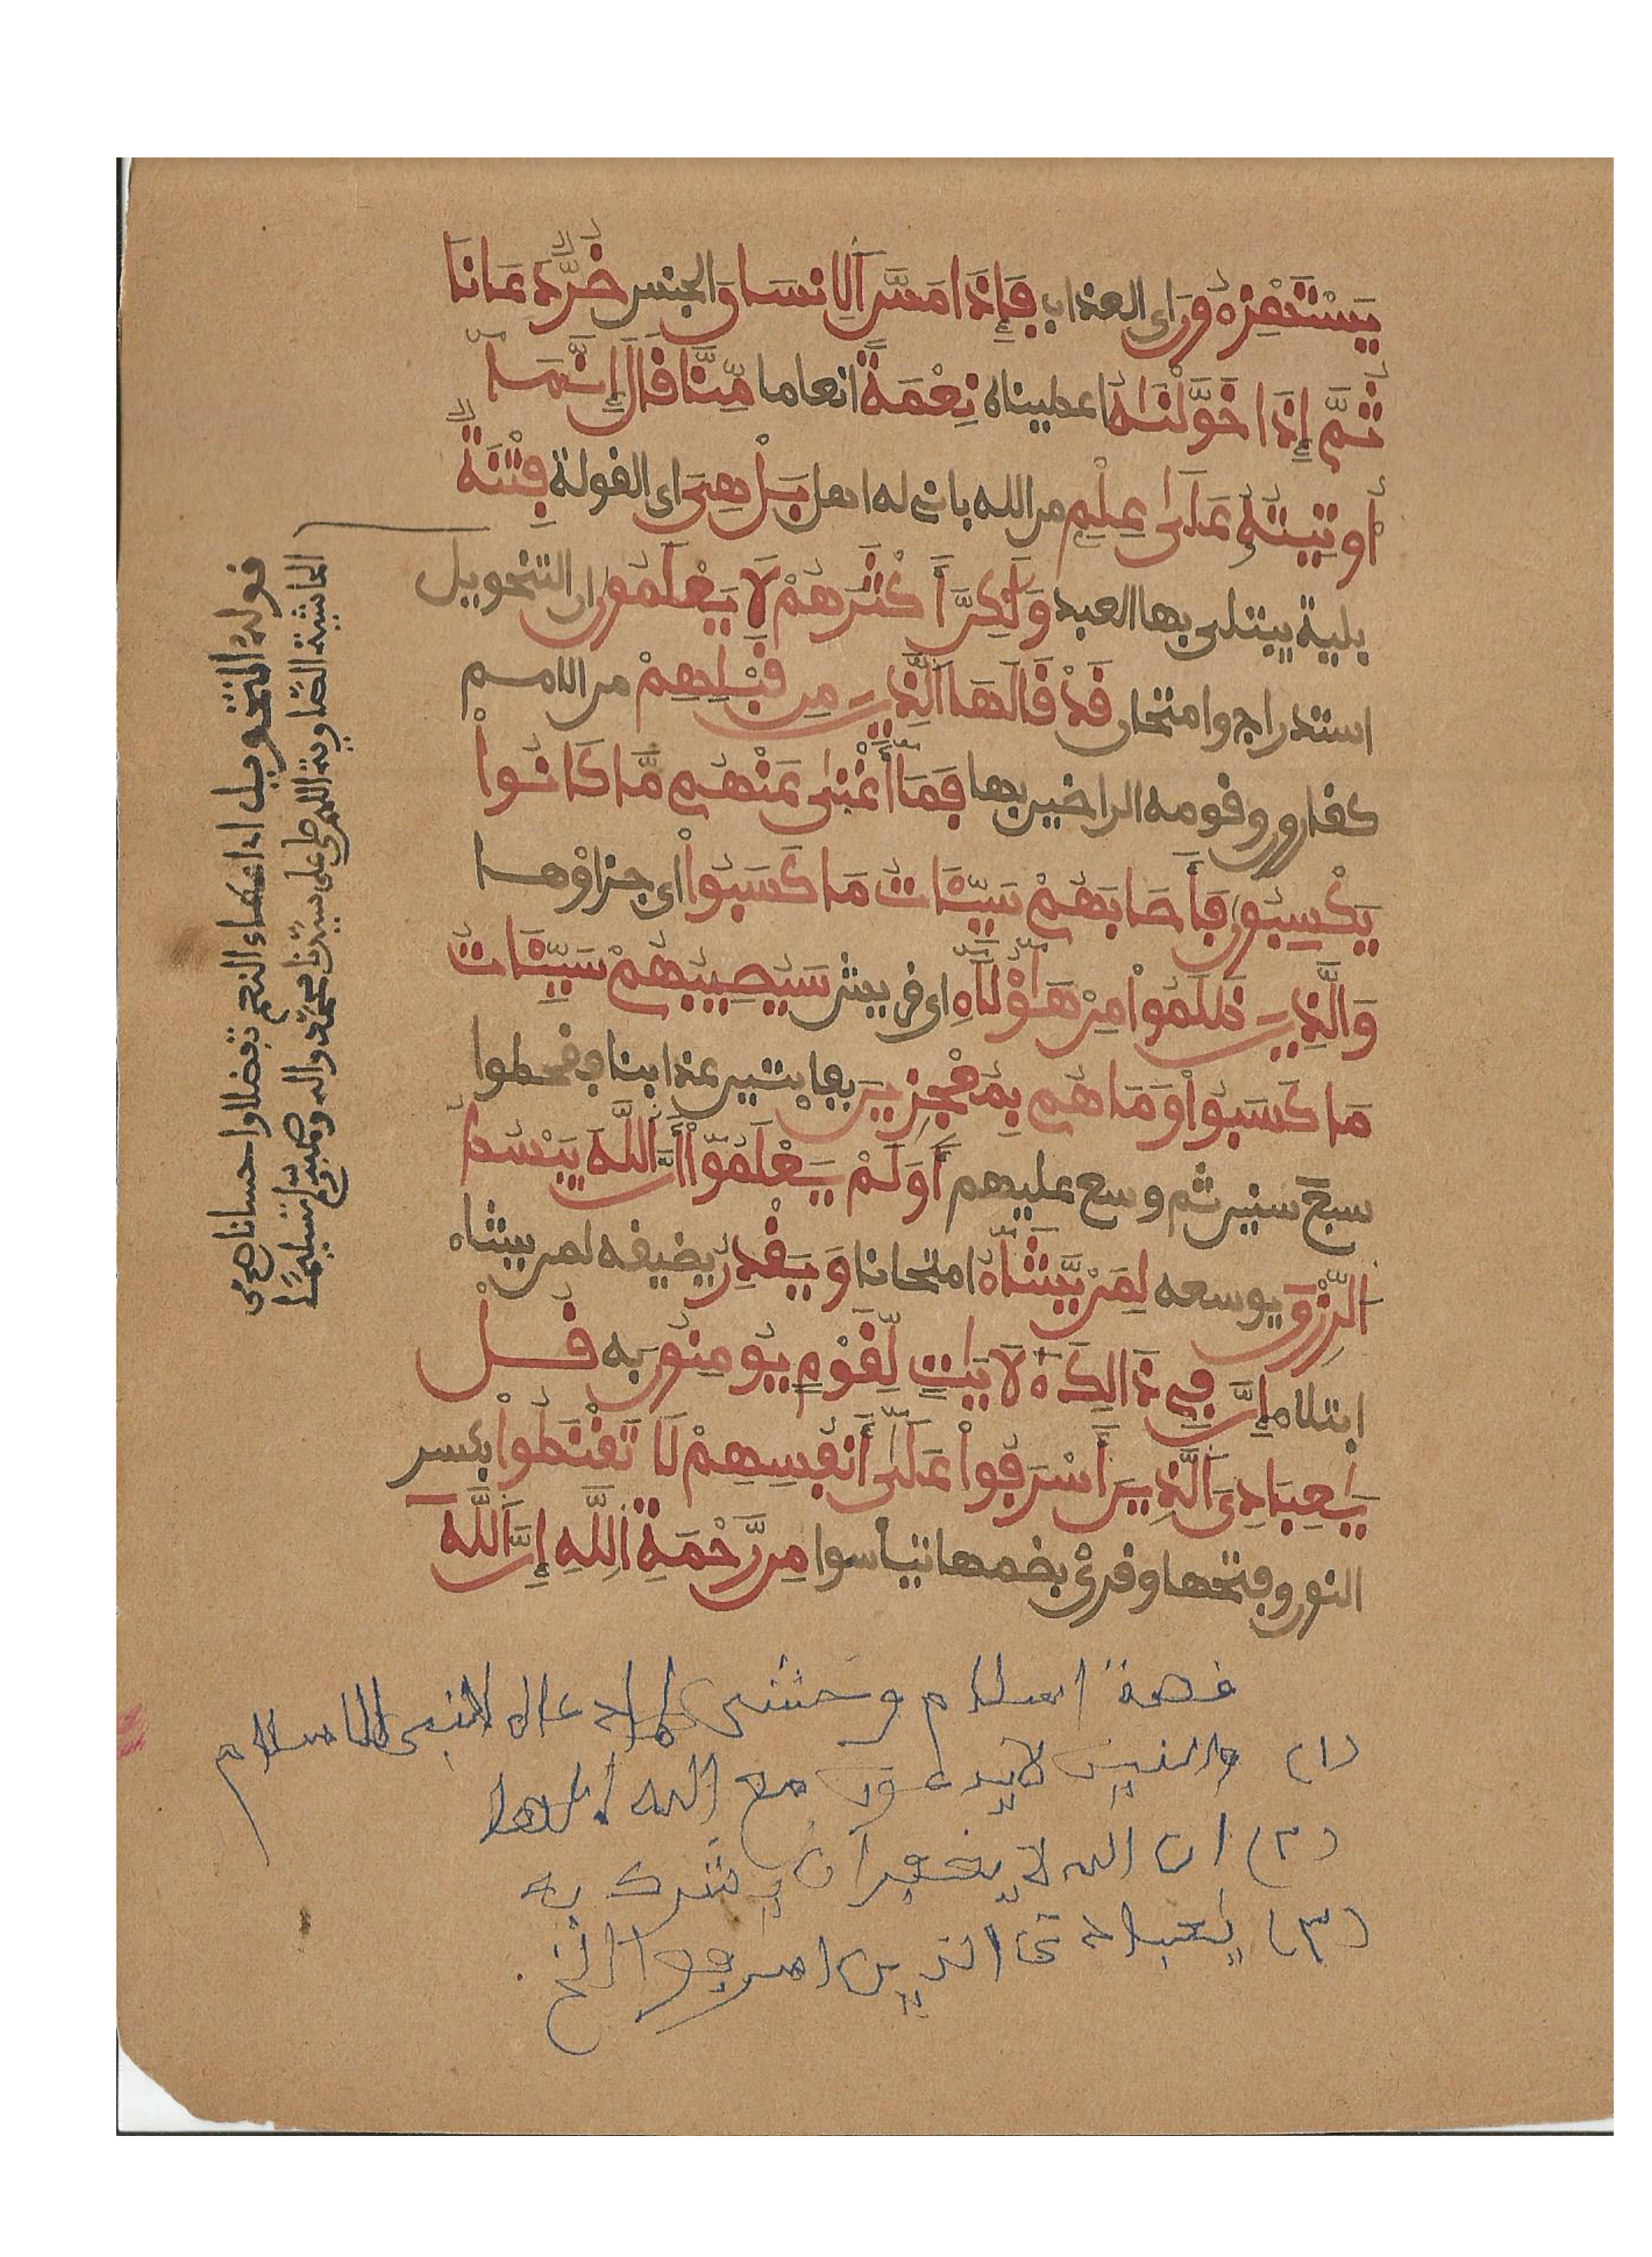 يَسْتَهْزِءُونَ اى العذاب فَإِذَا مَسَّ اَلِانسَانَ الجنس ضُرٌّ دَعَانَا
ثُمَّ إِذَا خَوَّلْنَٰهُ اعطيناه نِعْمَةً انعاما مِّنَّا قَالَ إِنَّمَا
أُوتِيتُهُ عَلَىٰ عِلْمٍ من الله بانى له اهل بَلْ هِىَ اى القولة فِتْنَةٌ
بلية يبتلى بها العبد وَلَٰكِنَّ أَكْثَرَهُمْ لَا يَعْلَمُونَ ان التخويل
استدراج وامتحان قَدْ قَالَهَا اَلَّذِينَ مِن قَبْلِهِمْ من الامم
كقارون وقومه الراضين بها فَمَا أَغْنَىٰ عَنْهُم مَّا كَانُوا
يَكْسِبُونَ فَأَصَابَهُمْ سَيِّـَٔاتُ مَا كَسَبُوا اى جزاؤها
وَالَّذِينَ ظَلَمُوا مِنْ هَٰؤُلَاءِ اى قريش سَيُصِيبُهُمْ سَيِّـَٔاتُ
مَا كَسَبُوا وَمَا هُم بِمُعْجِزِينَ بفايتين عذابنا فقحطوا
سبع سنين ثم وسع عليهم أَوَلَمْ يَعْلَمُوا أَنَّ اَللَّهَ يَبْسُطُ
اَلرِّزْقَ يوسعه لِمَنْ يَّشَاءُ امتحانا وَيَقْدِرُ يضيقه لمن يشاء
ابتلاء إِنَّ فِى ذَٰلِكَ لَأيَٰتٍ لِّقَوْمٍ يُومِنُونَ به قُلْ
يَٰعِبَادِىَ اَلَّذِينَ أَسْرَفُوا عَلَىٰ أَنفُسِهِمْ لَا تَقْنَطُوا بكسر
النون وفتحها وقرئ بضمها تيأسوا مِن رَّحْمَةِ اِللَّهِ إِنَّ اَللَّهَ
قوله التخويل اى اعطاء النعم تفضلا واحسانا اهـ من
الحاشية الصاوية اللهم صل على سيدنا محمد واله وصحبه وسلم تسليما
قصة اسلام وحشى
(١) والذين لا يدعون مع الله إلها
(٢) ان الله لا يغفر ان يشرك به
(٣) يعبادى الذين اسرفوا الخ.